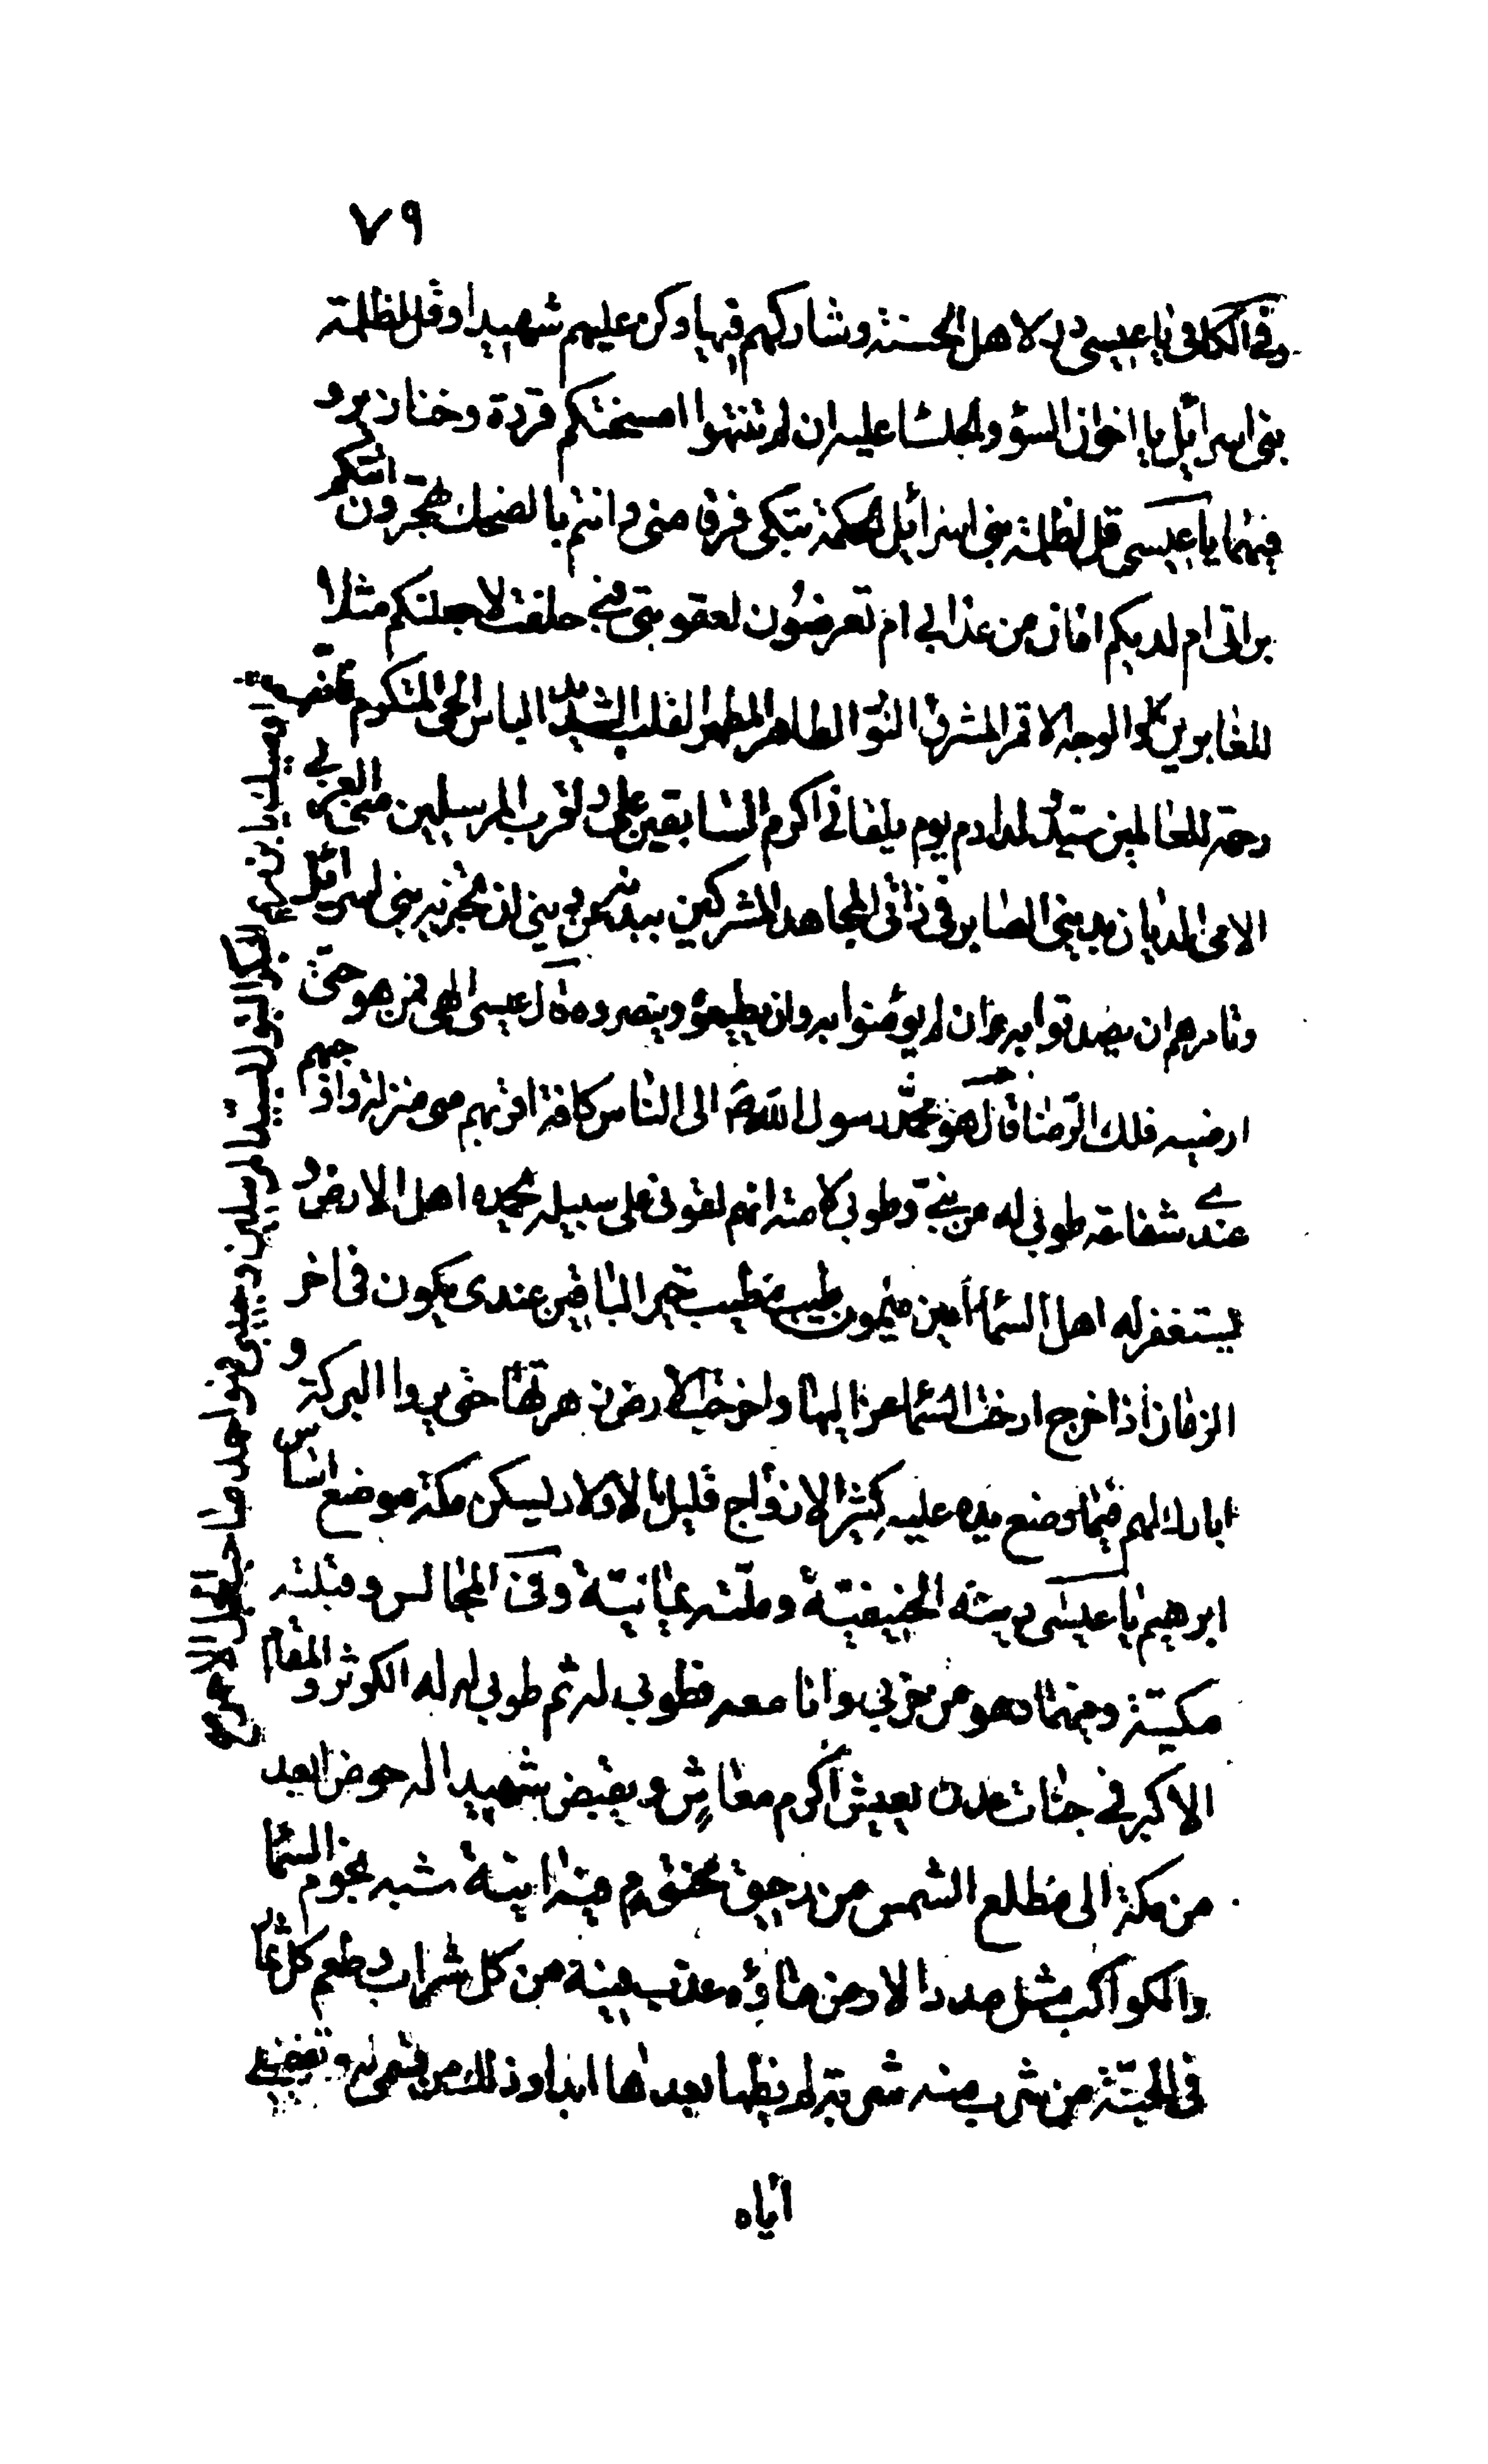 ٧٩
وفى الكافى يا عيسى دن لاهل الحسنة وشاركهم فيها وكن عليهم شهيدا وقل لظلمة
بنى اسرائيل يا اخوان السؤ والجلسا عليه ان لم تنتهوا امسختكم قردة وخنازير و
فيهما يا عيسى قل لظلمة بنى اسرائيل الحكمة تبكى فرقا منى وانتم بالضحك تهجرون اتتكم
براتى ام لديكم امان من عذابى ام تعرضون لعقوبتى فبى حلفت لاجعلنكم مثلا
للغابرين والوجه الاقمر المشرق النور الطاهر القلب الشديد الباس الحى المتكرم
رحمة للعالمين سيد ولد ادم يوم يلقانى اكرم السابقين على واقرب المرسلين منى العربى
الامى الديان بدينى الصابر فى ذاتى المجاهد المشركين بيده عن دينى ان تخبر به بنى اسرائيل
وتامرهم ان يصدقوا به وان يؤمنوا به وان يطيعوه وينصروه قال عيسى الهى من هو حتى
ارضيه فلك الرضا قال هو محمد رسول الله ص الى الناس كافة اقربهم منى منزلة واوجبهم
عندى شفاعة طوبى له من نبى وطوبى لامته ان هم لقونى على سبيله يحمده اهل الارض و
يستغفر له اهل السماء امين ميمون طيب مطيب خير الباقين عندى يكون فى اخر
الزمان اذا خرج ارخت السماء عزاليها واخرجت الارض زهرتها حتى يروا البركة و
ابارك لهم فيما وضع يده عليه كثير الازواج قليل الاولاد يسكن مكة موضع اساس
ابرهيم يا عيسى دينه الحنيفية وملته يمانية وفى المجالس وقبلته
مكية وفيهما وهو من حزبى وانا معه فطوبى له ثم طوبى له له الكوثر والمقام
الاكبر فى جنات عدن يعيش اكرم معاش ويقبض شهيدا له حوض ابعد
من مكة الى مطلع الشمس من رحيق مختوم فيه انية شبه نجوم السماء
والكواكب مثل مدر الارض ماؤه عذب فيه من كل شراب وطعم كل ثمار
فى الجنة من شرب منه شربة لم يظما بعدها ابدا وذلك من قسمى له وتفضيلى
اياه